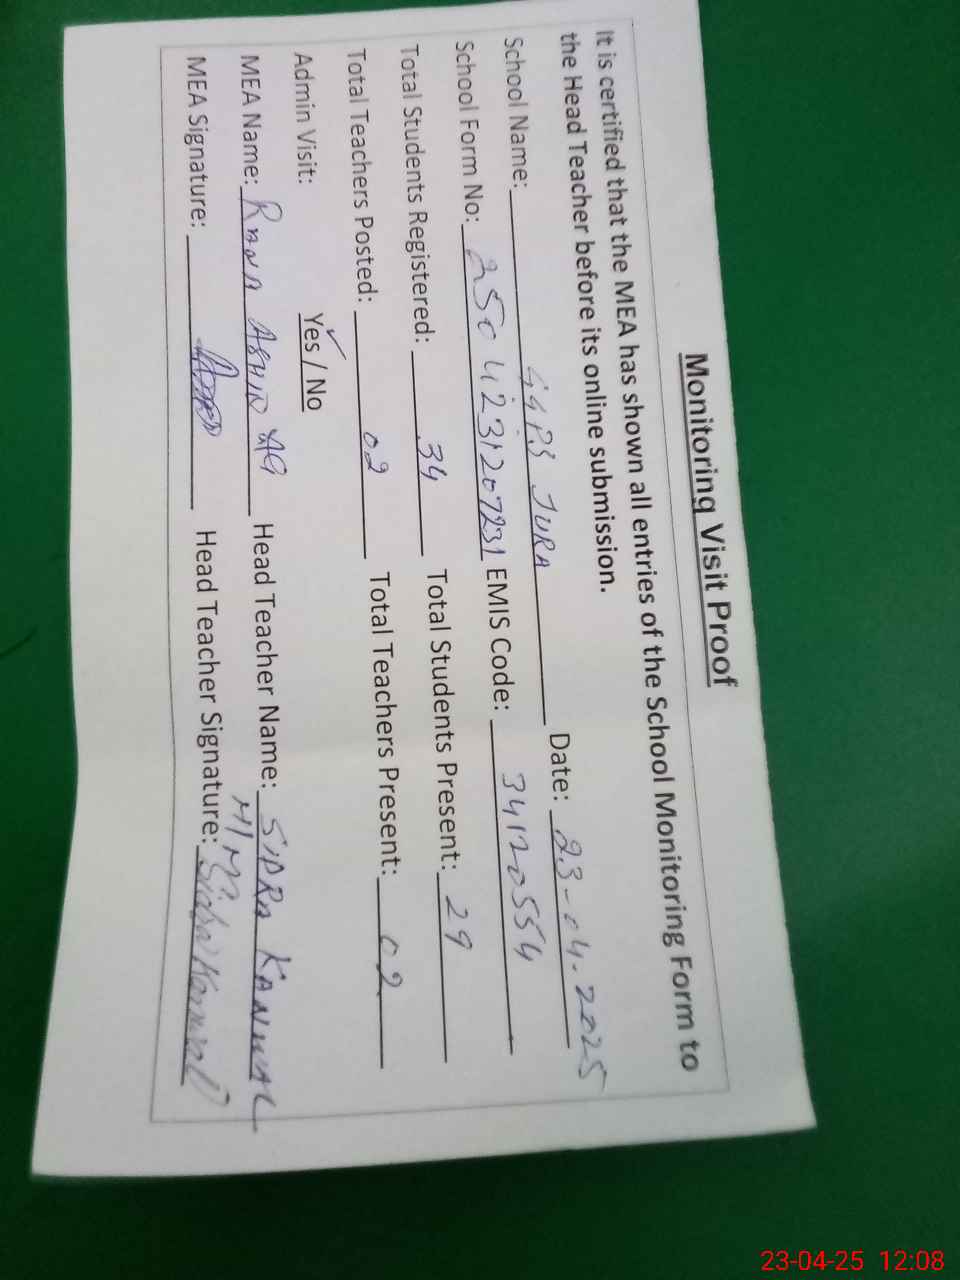 Monitoring Visit Proof
It is certified that the MEA has shown all entries of the School Monitoring Form to
the Head Teacher before its online submission.
School Name: GGPS JURA Date: 23-04-2025
School Form No: 2504231207231 EMIS Code: 34120554
Total Students Registered: 34 Total Students Present: 29
Total Teachers Posted: 02 Total Teachers Present: 02
Admin Visit: Yes / No
MEA Name: RANA Head Teacher Name: SIDRA KANWAL
MEA Signature: Head Teacher Signature:
23-04-25 12:08